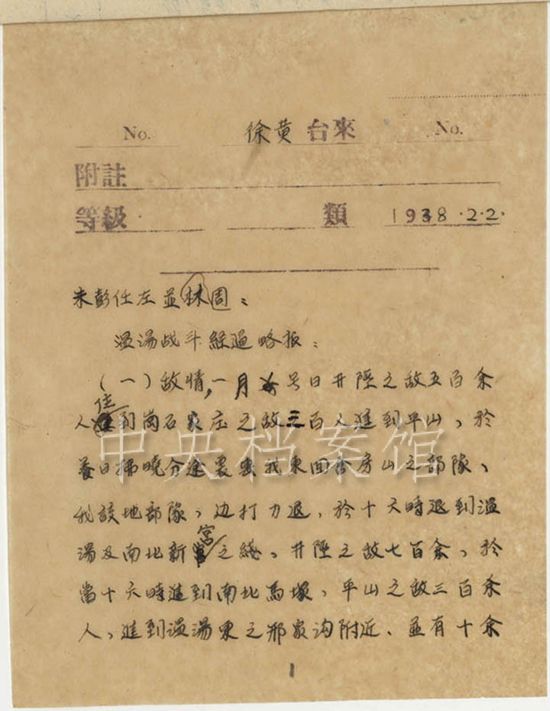 No. 徐黄 台來 No.
附註
等級 類 1938.2.2.
朱彭任左並林周：
温湯战斗經過略报：
（一）敌情，一月 号日井陘之敌五百余
人 住 到崗石家庄之敌三百人進到平山，於
養日拂曉分途襲我東回舍房山之部隊，
我該地部隊，边打 退，於十天時退到温
湯及南北新 宮 之綫，井陘之敌七百余，於
當十天時進到南北馬塚，平山之敌三百余
人，進到温湯東之邢家沟附近，並有十余
1
中央档案馆